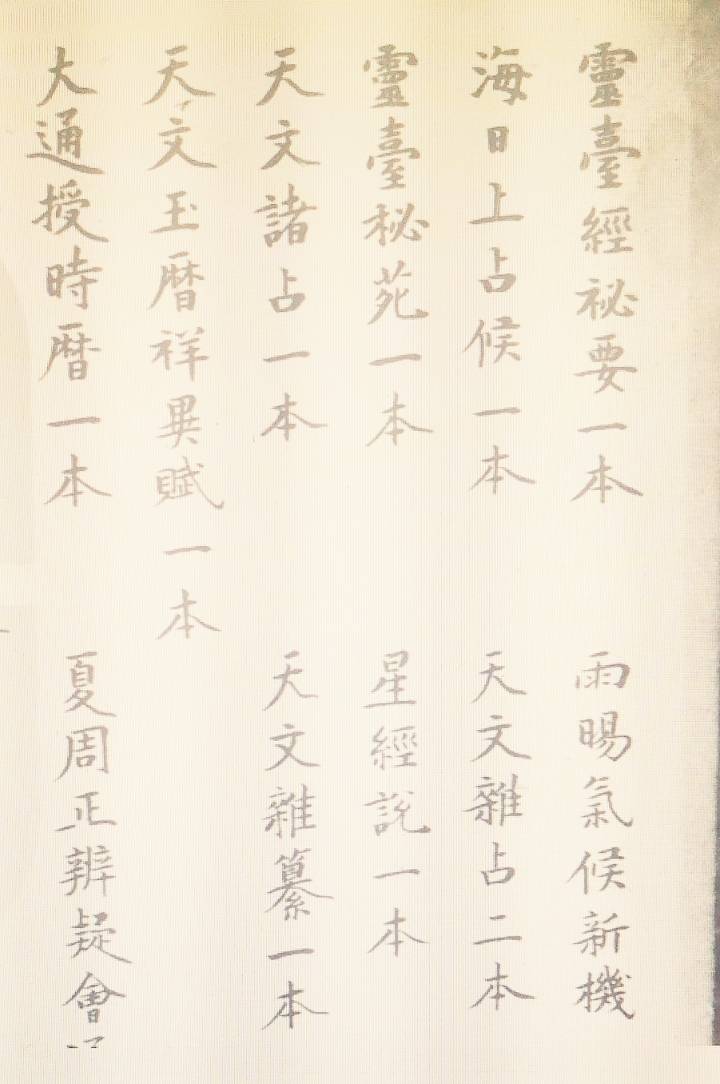 靈臺經祕要一本 雨暘氣候新機
海日上占候一本 天文雜占二本
靈臺秘苑一本 星經說一本
天文諸占一本 天文雜纂一本
天文玉曆祥異賦一本
大通授時曆一本 夏周正辨疑會